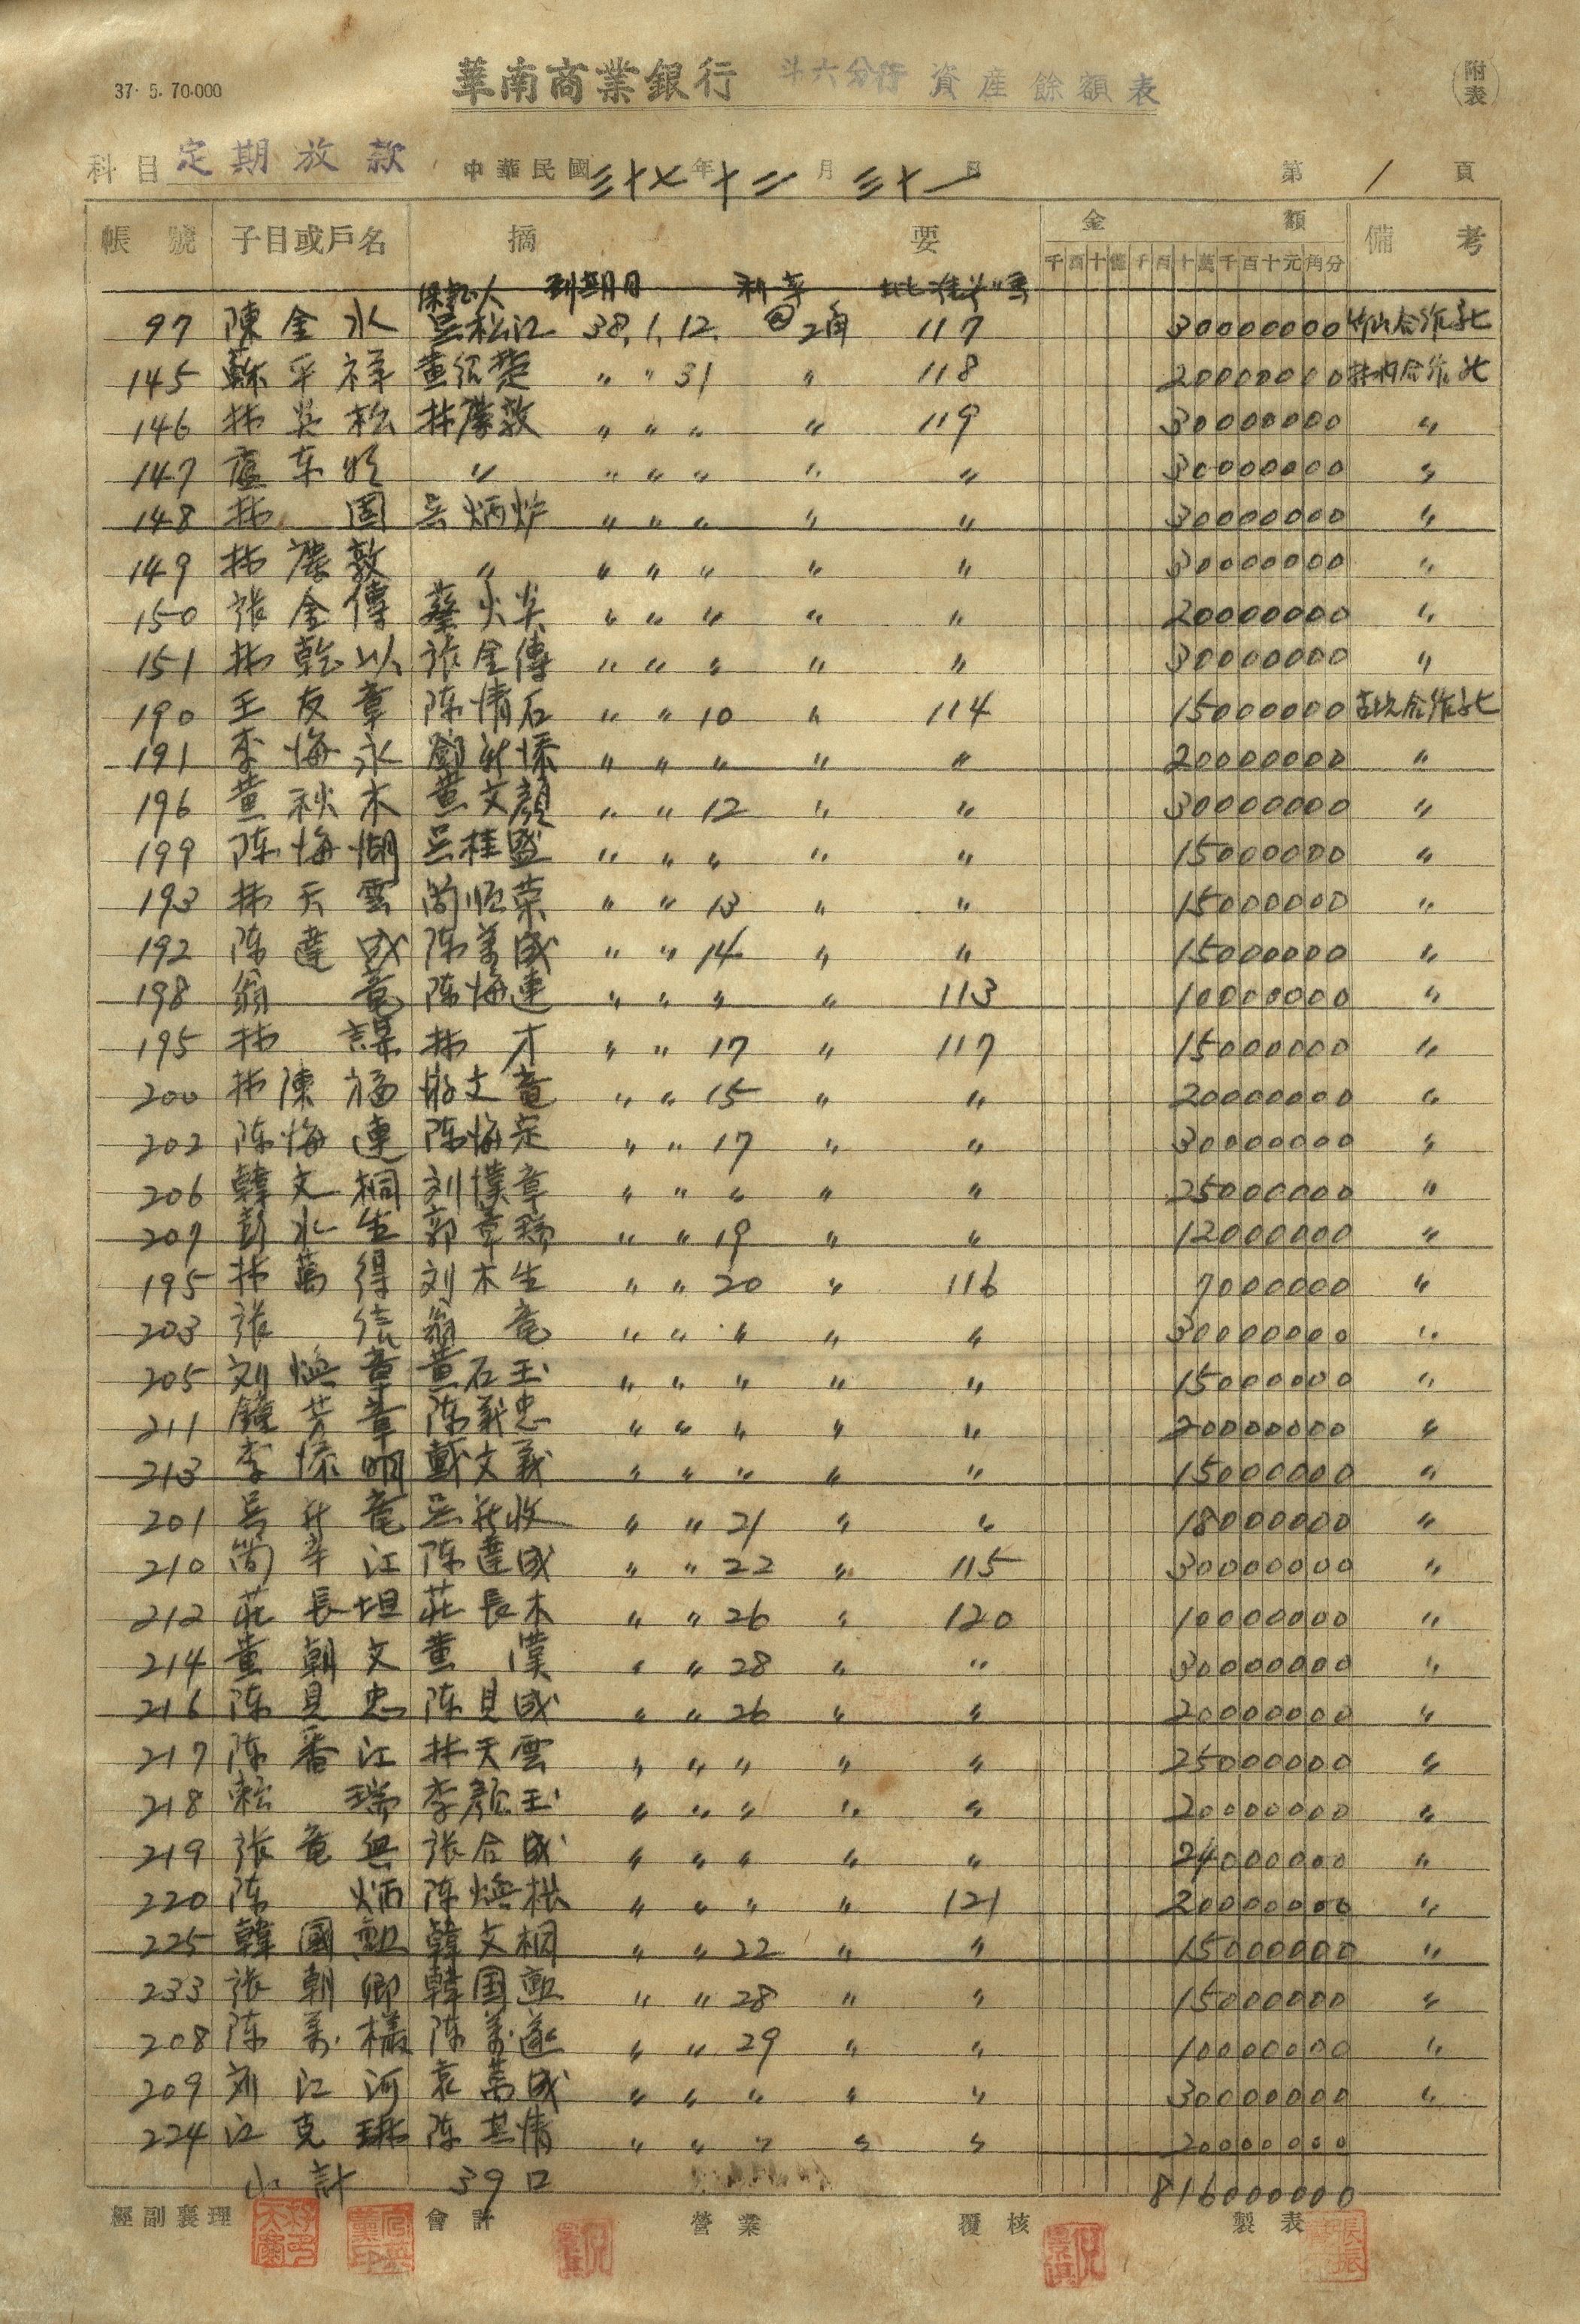 37. 5. 70.000
華南商業銀行 斗六分行 資產餘額表
(附表)
科目 定期放款 中華民國 三十七 年 十二 月 三十一 日 第 1 頁
帳號 子目或戶名 摘要 金額 備考
千百十億千百十萬千百十元角分
保証人 到期日 利率 批准番号
97 陳金水 吳松江 38. 1. 12. @2角 117 30000000 竹山合作社
145 蘇平祥 黃紹楚 〃 〃 31 〃 118 20000000 林內合作社
146 林吳松 林慶敦 〃 〃 〃 〃 119 30000000 〃
147 〃 〃 〃 〃 〃 〃 30000000 〃
148 林固 吳炳炉 〃 〃 〃 〃 〃 30000000 〃
149 林慶敦 〃 〃 〃 〃 〃 〃 30000000 〃
150 張金傳 蔡火 〃 〃 〃 〃 〃 20000000 〃
151 林乾以 張金傳 〃 〃 〃 〃 〃 30000000 〃
190 王友章 陈情石 〃 〃 10 〃 114 15000000 古坑合作社
191 李海永 〃 〃 〃 〃 〃 20000000 〃
196 黃秋木 黃文顏 〃 〃 12 〃 〃 30000000 〃
199 陈海湖 吳桂盛 〃 〃 〃 〃 〃 15000000 〃
193 林天雲 简順荣 〃 〃 13 〃 〃 15000000 〃
192 陈達成 陈萬成 〃 〃 14 〃 〃 15000000 〃
198 翁竜 陈海連 〃 〃 〃 〃 113 10000000 〃
195 林謀 林才 〃 〃 17 〃 117 15000000 〃
200 林陳福 游文竜 〃 〃 15 〃 〃 20000000 〃
202 陈海連 陈海定 〃 〃 17 〃 〃 30000000 〃
206 韓文桐 刘樸章 〃 〃 〃 〃 〃 25000000 〃
207 彭水生 郭章瑞 〃 〃 19 〃 〃 12000000 〃
195 林萬得 刘木生 〃 〃 20 〃 116 7000000 〃
203 張 翁竜 〃 〃 〃 〃 〃 30000000 〃
205 刘焕章 黃石玉 〃 〃 〃 〃 〃 15000000 〃
211 鐘芳章 陈義忠 〃 〃 〃 〃 〃 20000000 〃
213 李添明 戴文義 〃 〃 〃 〃 〃 15000000 〃
201 吳新竜 吳新收 〃 〃 21 〃 〃 18000000 〃
210 简辛江 陈達成 〃 〃 22 〃 115 30000000 〃
212 莊長坦 莊長木 〃 〃 26 〃 120 10000000 〃
214 黃朝文 黃漢 〃 〃 28 〃 〃 30000000 〃
216 陈見忠 陈見成 〃 〃 26 〃 〃 20000000 〃
217 陈番江 林天雲 〃 〃 〃 〃 〃 25000000 〃
218 賴瑞 李顏玉 〃 〃 〃 〃 〃 20000000 〃
219 張竜與 張合成 〃 〃 〃 〃 〃 24000000 〃
220 陈炳 陈焕根 〃 〃 〃 〃 121 20000000 〃
225 韓國勲 韓文桐 〃 〃 22 〃 〃 15000000 〃
233 張朝卿 韓国勲 〃 〃 28 〃 〃 15000000 〃
208 陈萬様 陈萬逐 〃 〃 29 〃 〃 10000000 〃
209 刘江河 袁萬成 〃 〃 〃 〃 〃 30000000 〃
224 江克琳 陈其情 〃 〃 〃 〃 〃 20000000
小計 39口 816000000
經副襄理 會計 營業 覆核 製表